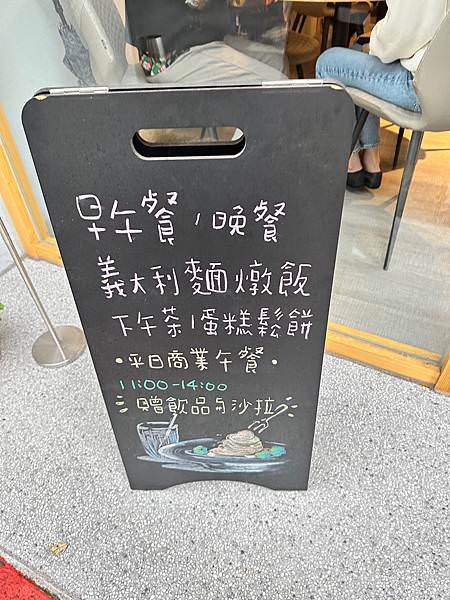 早午餐/晚餐
義大利麵燉飯
下午茶/蛋糕鬆餅
•平日商業午餐•
11:00-14:00
贈飲品与沙拉